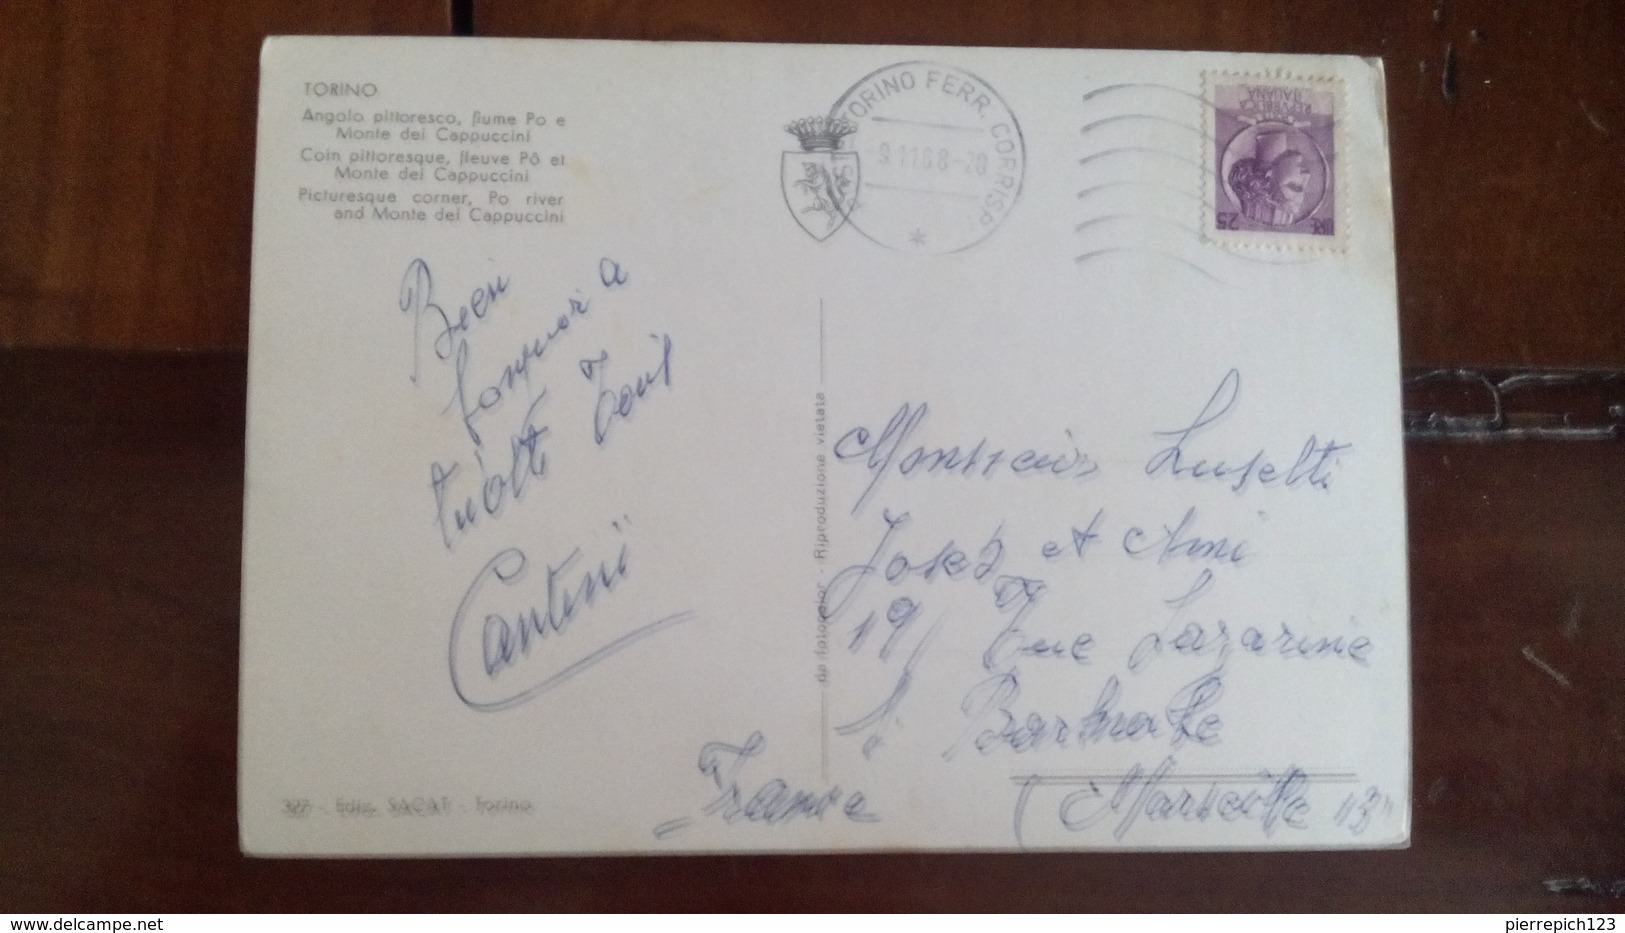 TORINO
Angolo pittoresco, fiume Po e
Monte dei Cappuccini
Coin pittoresque, fleuve Pô et
Monte dei Cappuccini
Picturesque corner, Po river
and Monte dei Cappuccini
TORINO FERR. CORRISP.
9.11.68-20
REPVBBLICA
ITALIANA
LIRE 25
Bien
bonjour a
tout
Cantini
da fotocolor - Riproduzione vietata
Monsieur Luselti
José et Ami
19, Rue Lazarine
St Barthnabe
(Marseille "13"
France
327 - Ediz. SACAT - Torino
delcampe.net
pierrepich123